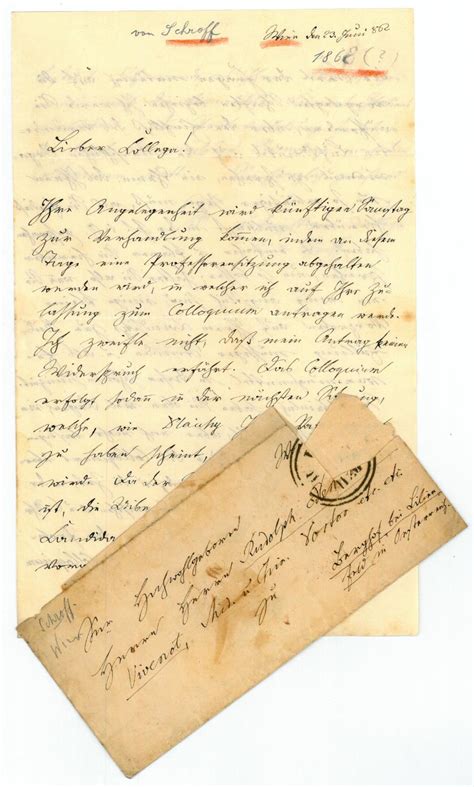 von Schroff
Wien den 23. Juni 862
1868 (?)
Lieber Collega!
Ihre Angelegenheit wird künftigen Samstag
zur Verhandlung kommen, indem an diesem
Tage eine Professorensitzung abgehalten
werden wird, in welcher ich auf Ihre Zu
lassung zum Colloquium antragen werde.
Ich zweifle nicht, daß mein Antrag keinen
Widerspruch erfährt. Das Colloquium
erfolgt sodann in der nächsten Sitzung,
welche, wie
zu haben scheint,
wird. Da der
ist, die
Candida
Schroff
Wien
Sr. Hochwohlgeboren
Herrn Herrn Rudolph
Vivenot, Med. u. Chir. Doctor etc. etc.
zu
Berghof bei Lilien
feld in Oesterreich